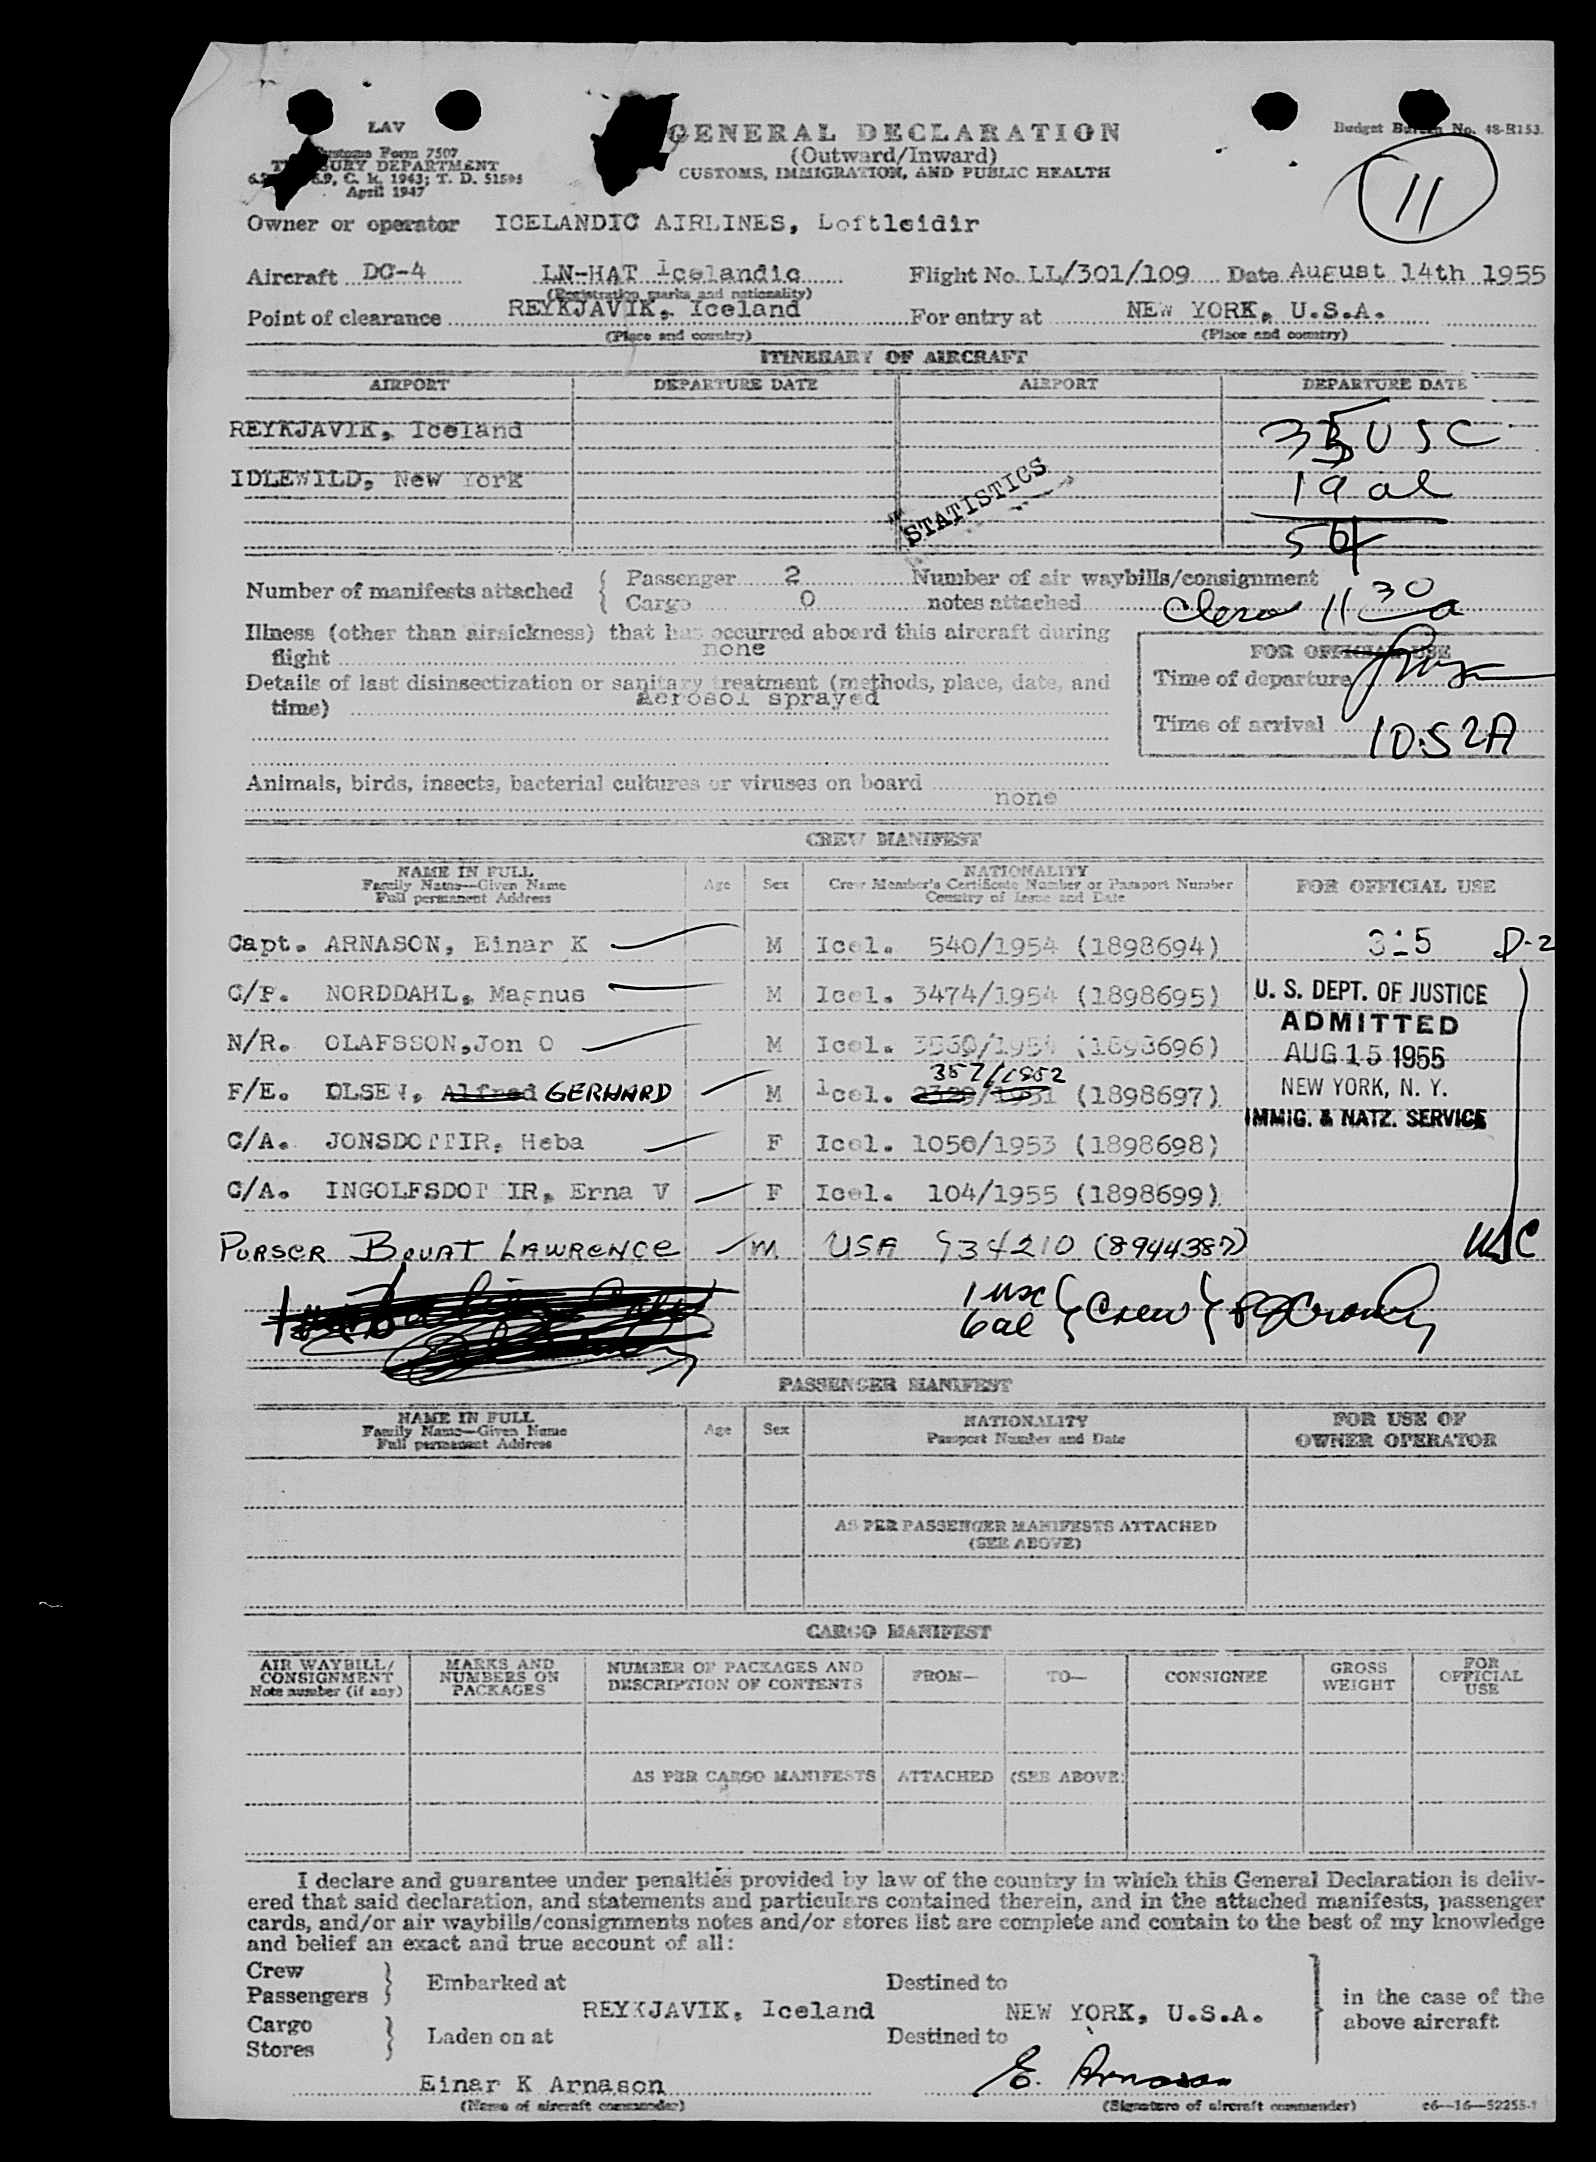 LAV
Customs Form 7507
TREASURY DEPARTMENT
C. R. 1943; T. D. 51595
April 1947
GENERAL DECLARATION
(Outward/Inward)
CUSTOMS, IMMIGRATION, AND PUBLIC HEALTH
Budget Bureau No. 48-R153.
11
Owner or operator ICELANDIC AIRLINES, Loftleidir
Aircraft DC-4 LN-HAT Icelandic Flight No. LL/301/109 Date August 14th 1955
(Registration marks and nationality)
Point of clearance REYKJAVIK, Iceland For entry at NEW YORK, U.S.A.
(Place and country) (Place and country)
ITINERARY OF AIRCRAFT
AIRPORT DEPARTURE DATE AIRPORT DEPARTURE DATE
REYKJAVIK, Iceland
35 USC
IDLEWILD, New York
19 al
STATISTICS
54
Number of manifests attached { Passenger 2 Number of air waybills/consignment
Cargo 0 notes attached
Clear 11 30 a
Illness (other than airsickness) that has occurred aboard this aircraft during
flight none
Details of last disinsectization or sanitary treatment (methods, place, date, and
time) Aerosol sprayed
FOR OFFICIAL USE
Time of departure
Time of arrival 10:52A
Animals, birds, insects, bacterial cultures or viruses on board none
CREW MANIFEST
NAME IN FULL
Family Name—Given Name
Full permanent Address
Age
Sex
NATIONALITY
Crew Member's Certificate Number or Passport Number
Country of Issue and Date
FOR OFFICIAL USE
Capt. ARNASON, Einar K M Icel. 540/1954 (1898694) 315 D-2
C/P. NORDDAHL, Magnus M Icel. 3474/1954 (1898695)
N/R. OLAFSSON, Jon O M Icel. 3560/1954 (1898696)
357/1952
F/E. OLSEN, Alfred GERHARD M Icel. 2329/1951 (1898697)
C/A. JONSDOTTIR, Heba F Icel. 1050/1953 (1898698)
C/A. INGOLFSDOTTIR, Erna V F Icel. 104/1955 (1898699)
U. S. DEPT. OF JUSTICE
ADMITTED
AUG 15 1955
NEW YORK, N. Y.
IMMIG. & NATZ. SERVICE
PURSER BOUAT LAWRENCE M USA 934210 (8944387) USC
1 usc
6 al } Crew }
PASSENGER MANIFEST
NAME IN FULL
Family Name—Given Name
Full permanent Address
Age
Sex
NATIONALITY
Passport Number and Date
FOR USE OF
OWNER OPERATOR
AS PER PASSENGER MANIFESTS ATTACHED
(SEE ABOVE)
CARGO MANIFEST
AIR WAYBILL/
CONSIGNMENT
Note number (if any)
MARKS AND
NUMBERS ON
PACKAGES
NUMBER OF PACKAGES AND
DESCRIPTION OF CONTENTS
FROM—
TO—
CONSIGNEE
GROSS
WEIGHT
FOR
OFFICIAL
USE
AS PER CARGO MANIFESTS ATTACHED (SEE ABOVE)
I declare and guarantee under penalties provided by law of the country in which this General Declaration is deliv-
ered that said declaration, and statements and particulars contained therein, and in the attached manifests, passenger
cards, and/or air waybills/consignments notes and/or stores list are complete and contain to the best of my knowledge
and belief an exact and true account of all:
Crew
Passengers } Embarked at REYKJAVIK, Iceland Destined to NEW YORK, U.S.A.
Cargo
Stores } Laden on at Destined to
in the case of the
above aircraft
Einar K Arnason E. Arnason
(Name of aircraft commander) (Signature of aircraft commander) c6—16—52255-1